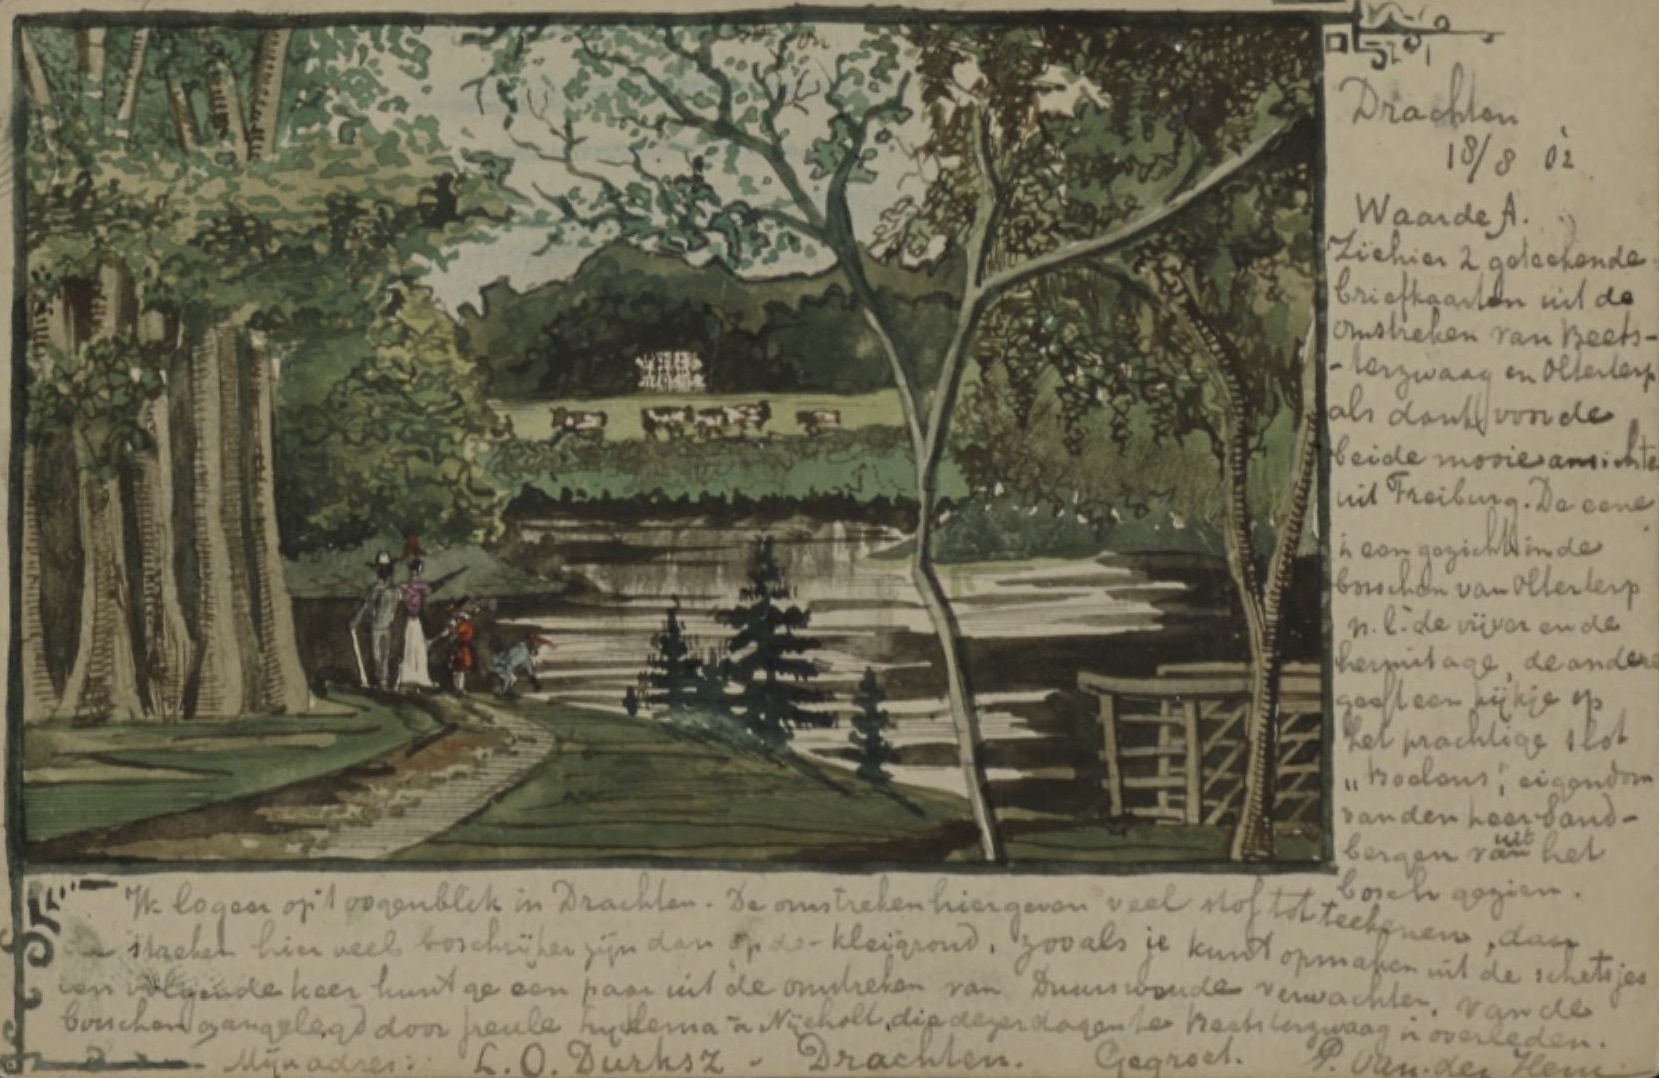 Drachten
18/8 02
Waarde A.
Ziehier 2 geteekende
briefkaarten uit de
omstreken van Beets-
-terzwaag en Olterterp
als dank voor de
beide mooie ansichte
uit Freiburg. De eene
is een gezicht in de
bosschen van Olterterp
n.l. de vijver en de
hermitage, de andere
geeft een kijkje op
het prachtige slot
"Boelens", eigendom
van den heer
van uit het
bosch gezien.
Ik logeer op 't oogenblik in Drachten. De omstreken hier geven veel stof tot teekenen, daar
de streken hier veel boschrijker zijn dan op de kleigrond, zooals je kunt opmaken uit de schetsjes
een volgende keer kunt ge een paar uit de omstreken van Duurswoude verwachten, van de
bosschen aangelegd door à Nijeholt, die dezer dagen te Beetsterzwaag is overleden.
Mijn adres: L. O. Durksz - Drachten. Gegroet. P. van der Hem